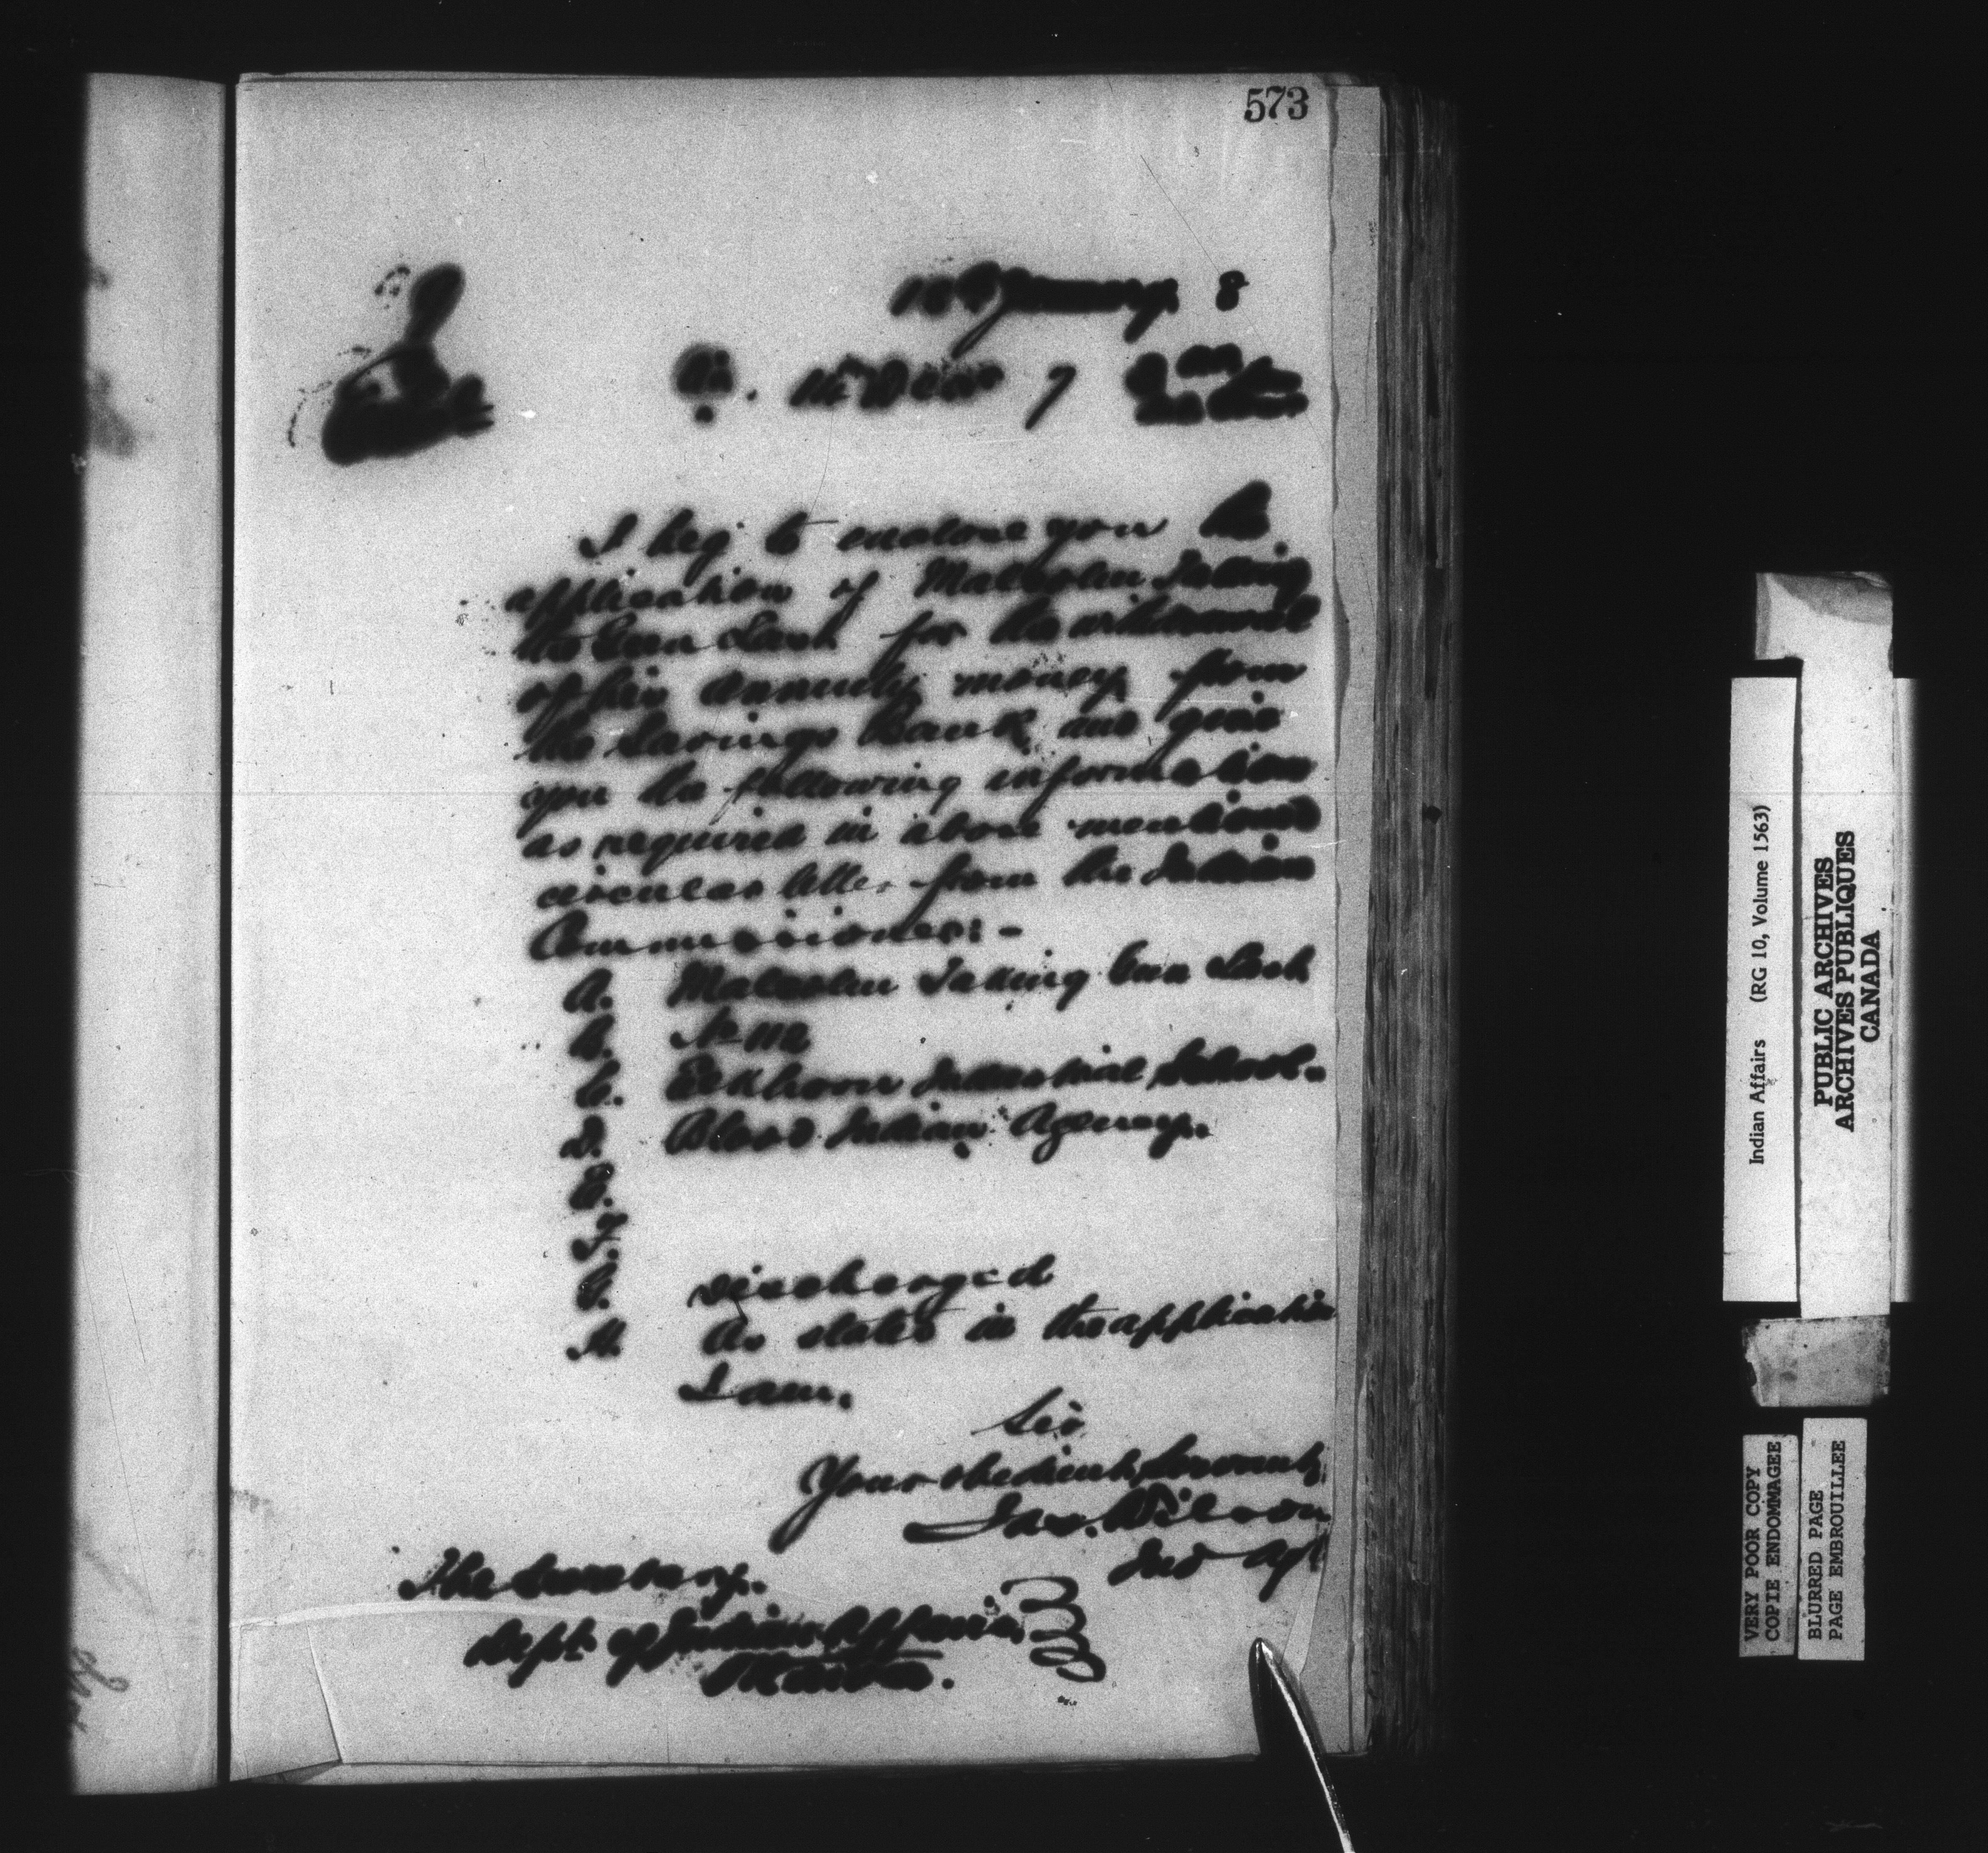 573
January 8
Sir. 7
I beg to enclose you the
application of Malcolm Taking
the Gun Last for the withdrawal
of his annuity money from
the Savings Bank and give
you the following information
as required in above mentioned
circular letter from the Indian
Commissioner:-
A. Malcolm Taking Gun Last
B. No 112
C. Elkhorn Industrial School.
D. Blood Indian Agency.
E.
F.
G. Discharged
H. As stated in the application
I am,
Sir
Your obedient Servant,
Jas. Wilson
Ind Agt
The Secretary,
Dept. of Indian Affairs,
Ottawa.
Indian Affairs (RG 10, Volume 1563)
PUBLIC ARCHIVES
ARCHIVES PUBLIQUES
CANADA
VERY POOR COPY
COPIE ENDOMMAGEE
BLURRED PAGE
PAGE EMBROUILLEE